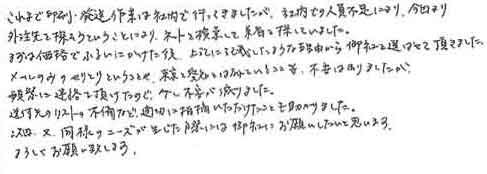 これまで印刷・発送作業は社内で行ってきましたが、社内での人員不足により、今回より
外注先を探そうということになり、ネットを検索して業者を探していました。
まずは価格でふるいにかけた後、上にも記しましたような理由から御社を選ばせて頂きました。
メールのみのやりとりということや、東京と愛知とは離れていること等、不安はありましたが、
頻繁に連絡を頂けたので、少し不安が減りました。
送付先のリストの不備など、適切に指摘いただけたことも助かりました。
次回、又、同様のニーズが生じた際には御社にお願いしたいと思います。
よろしくお願い致します。